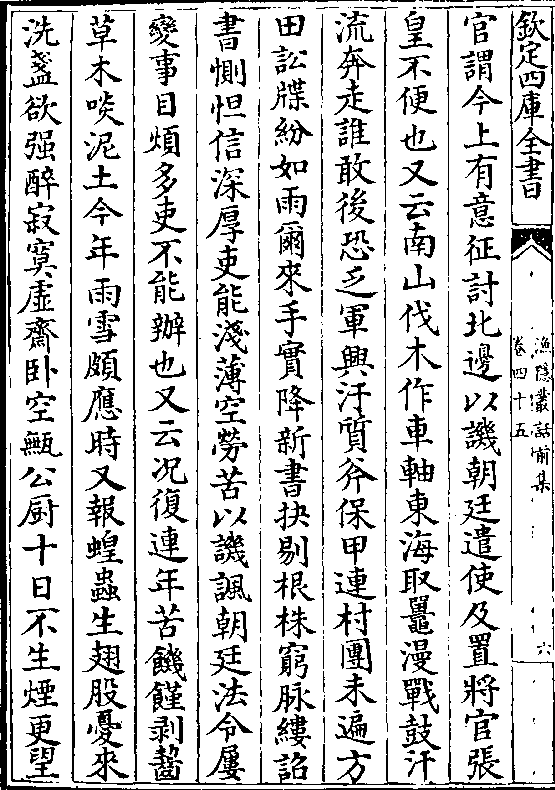 欽定四庫全書
漁隱叢話前集
卷四十五
六
官謂今上有意征討北邊以譏朝廷遣使及置將官張
皇不便也又云南山伐木作車軸東海取鼉漫戰鼓汗
流奔走誰敢後恐乏軍興汙質斧保甲連村團未遍方
田訟牒紛如雨爾來手實降新書抉剔根株窮脉縷詔
書惻怛信深厚吏能淺薄空勞苦以譏諷朝廷法令屢
變事目煩多吏不能辦也又云况復連年苦饑饉剥齧
草木啖泥土今年雨雪頗應時又報蝗蟲生翅股憂來
洗盞欲强醉寂寞虛齋卧空甒公厨十日不生煙更望